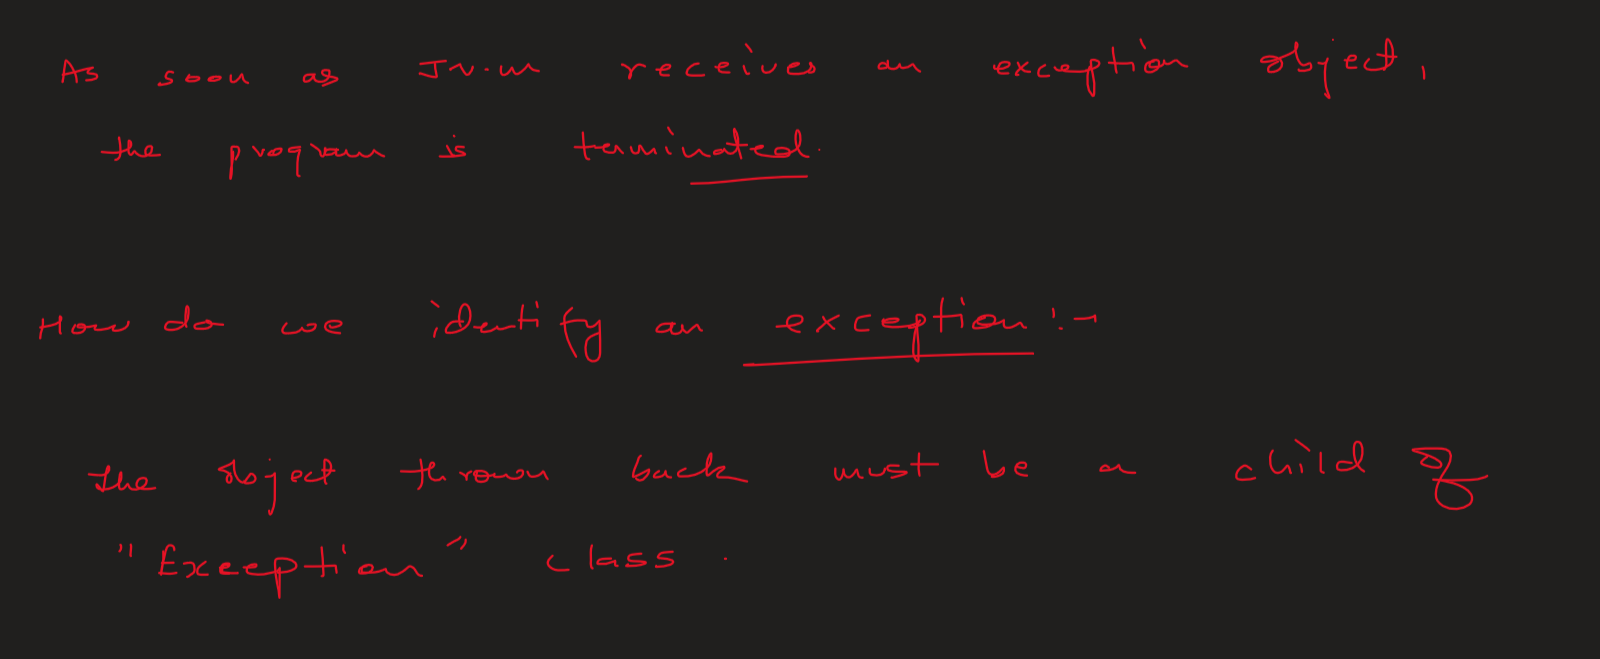 As soon as JV.M receives an exception object,
the program is terminated.
How do we identify an exception :-
the object thrown back must be a child of
"Exception" class.